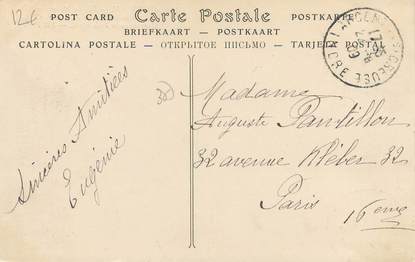 12€
POST CARD Carte Postale POSTKARTE
BRIEFKAART — POSTKAART
CARTOLINA POSTALE — ОТКРЫТОЕ ПИСЬМО — TARJETA POSTAL
ARGENTON S CREUSE
INDRE
Sincères Amitiés
Eugénie
Madame
Auguste Pantillon
32 avenue Kléber 32
Paris
16eme